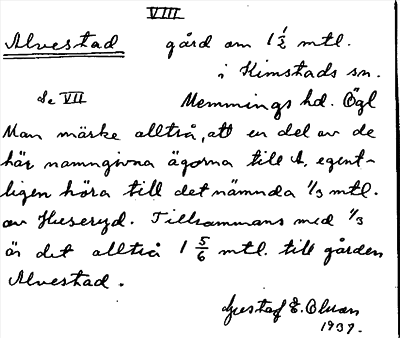 VIII
Alvestad gård om 1 1/2 mtl.
i Kimstads sn.
Se VII Memmings hd. Ögl
Man märke alltså, att en del av de
här namngivna ägorna till A. egent-
ligen höra till det nämnda 1/3 mtl.
av Huseryd. Tillsammans med 1/3
är det alltså 1 5/6 mtl. till gården
Alvestad.
Gustaf E. Olsson
1939.